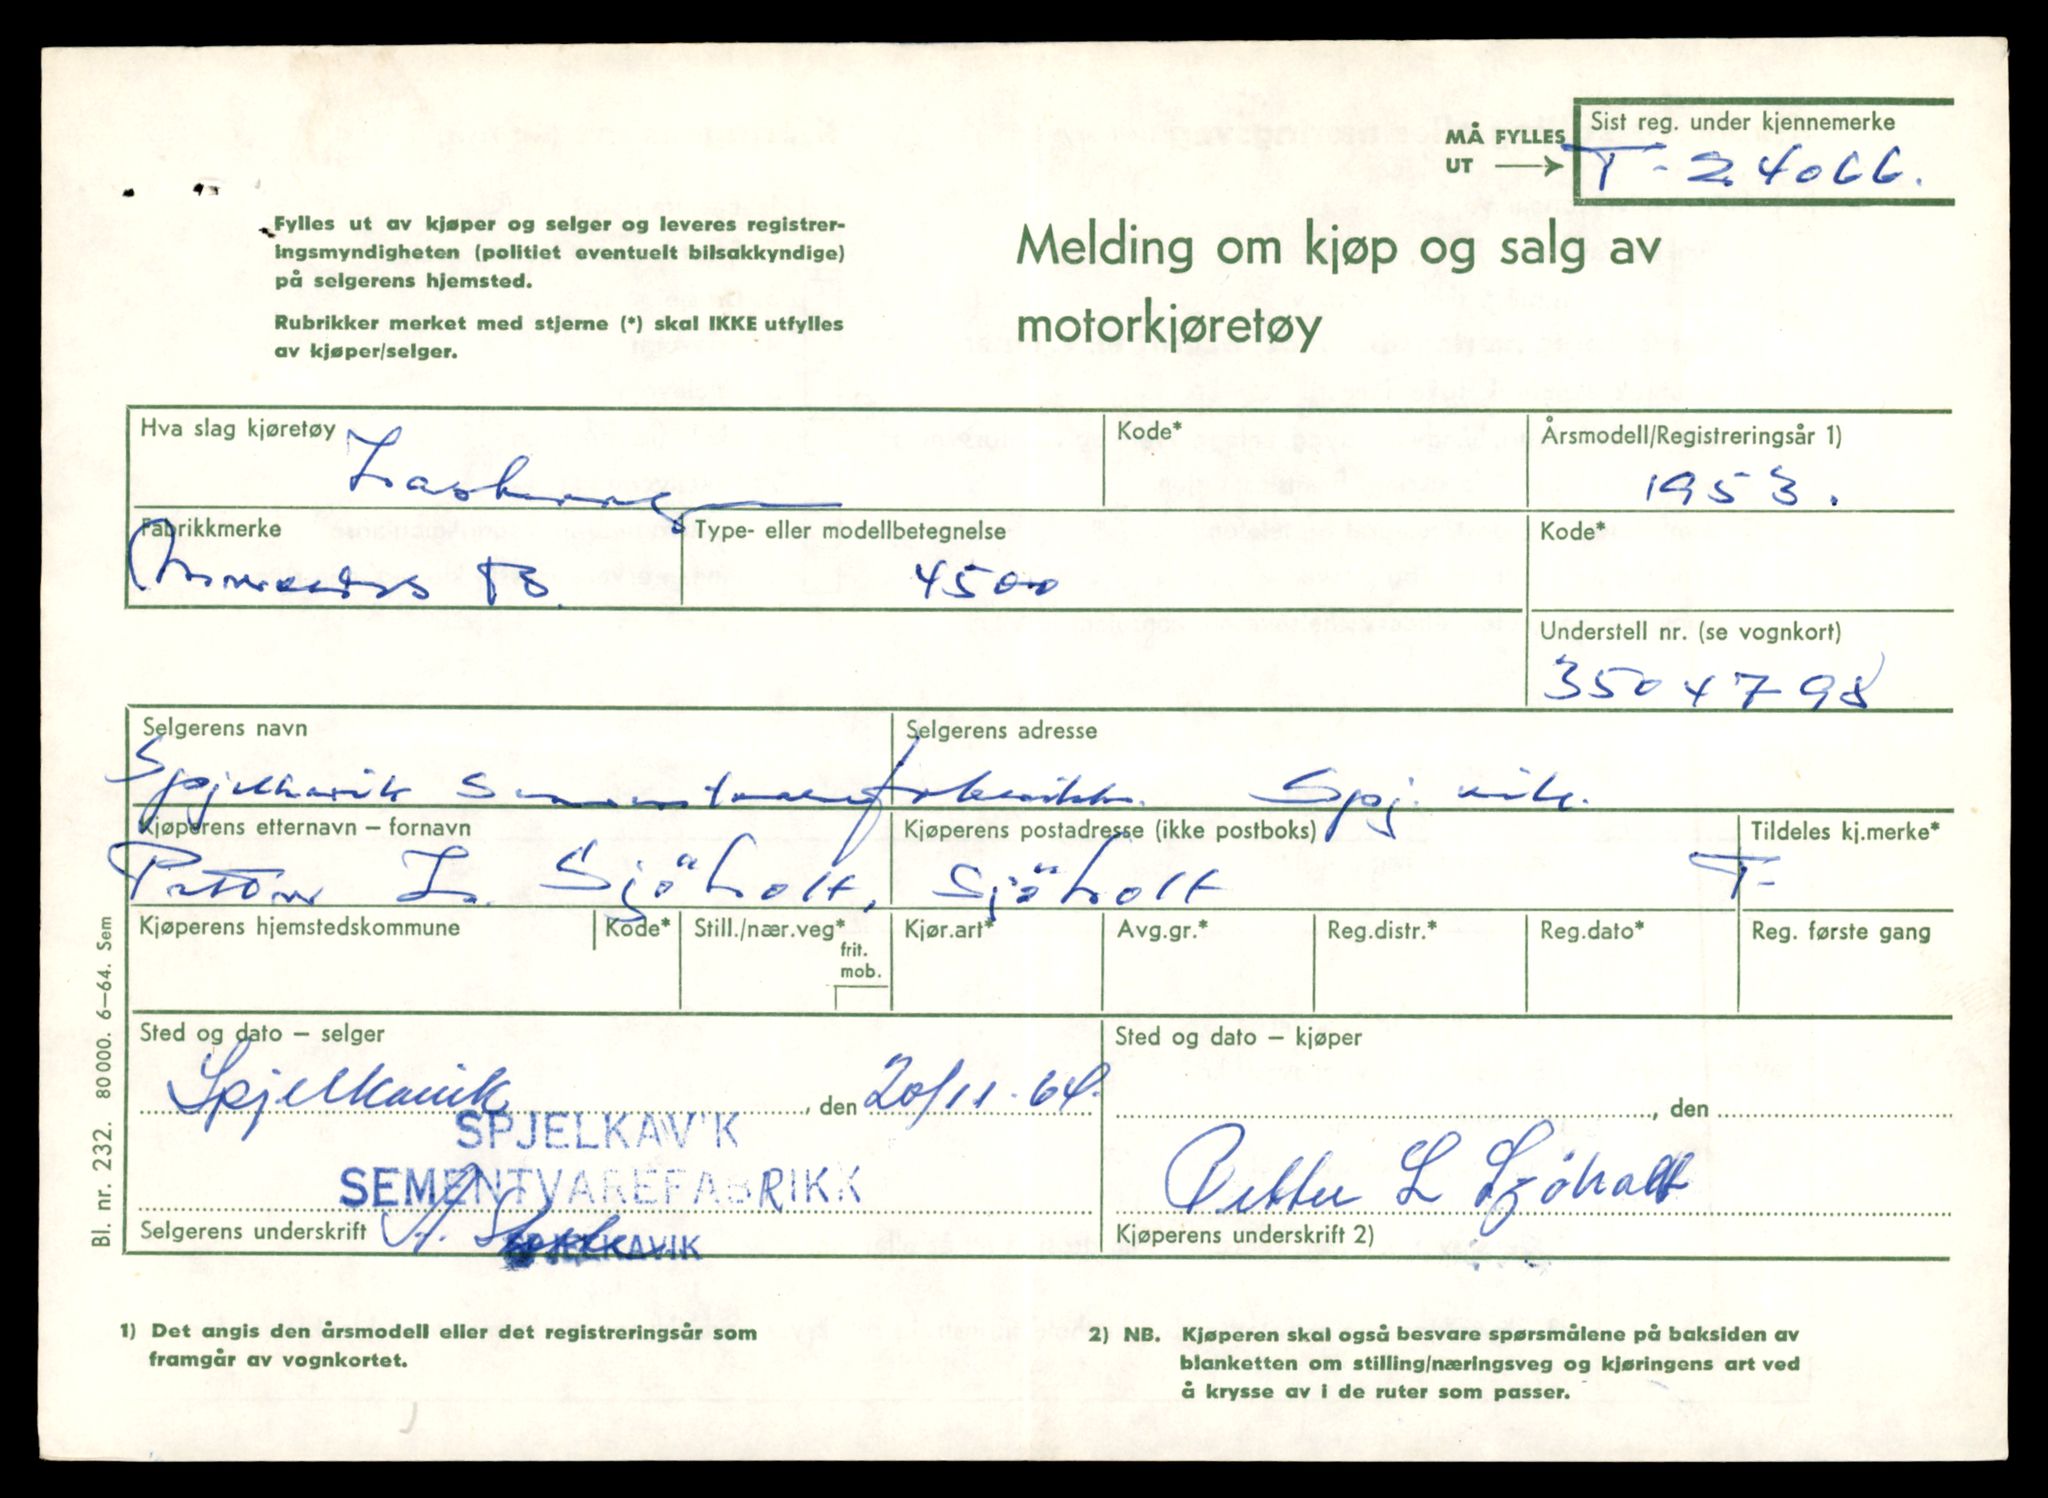 MÅ FYLLES
UT →
Sist reg. under kjennemerke
T - 24066.
Fylles ut av kjøper og selger og leveres registrer-
ingsmyndigheten (politiet eventuelt bilsakkyndige)
på selgerens hjemsted.
Rubrikker merket med stjerne (*) skal IKKE utfylles
av kjøper/selger.
Melding om kjøp og salg av
motorkjøretøy
Hva slag kjøretøy
Lastevogn
Kode*
Årsmodell/Registreringsår 1)
1953.
Fabrikkmerke
Mercedes B.
Type- eller modellbetegnelse
4500
Kode*
Understell nr. (se vognkort)
3504798
Selgerens navn
Spjelkavik Sementvarefabrikk.
Selgerens adresse
Spj.vik.
Kjøperens etternavn – fornavn
Petter L. Sjöholt,
Kjøperens postadresse (ikke postboks)
Sjöholt
Tildeles kj.merke*
T-
Kjøperens hjemstedskommune
Kode*
Still./nær.veg*
frit.
mob.
Kjør.art*
Avg.gr.*
Reg.distr.*
Reg.dato*
Reg. første gang
Sted og dato – selger
Spjelkavik, den 20/11-64.
SPJELKAVIK
SEMENTVAREFABRIKK
SPJELKAVIK
Selgerens underskrift
Sted og dato – kjøper
, den
Petter L Sjøholt
Kjøperens underskrift 2)
Bl. nr. 232. 80 000. 6–64. Sem
1) Det angis den årsmodell eller det registreringsår som
framgår av vognkortet.
2) NB. Kjøperen skal også besvare spørsmålene på baksiden av
blanketten om stilling/næringsveg og kjøringens art ved
å krysse av i de ruter som passer.